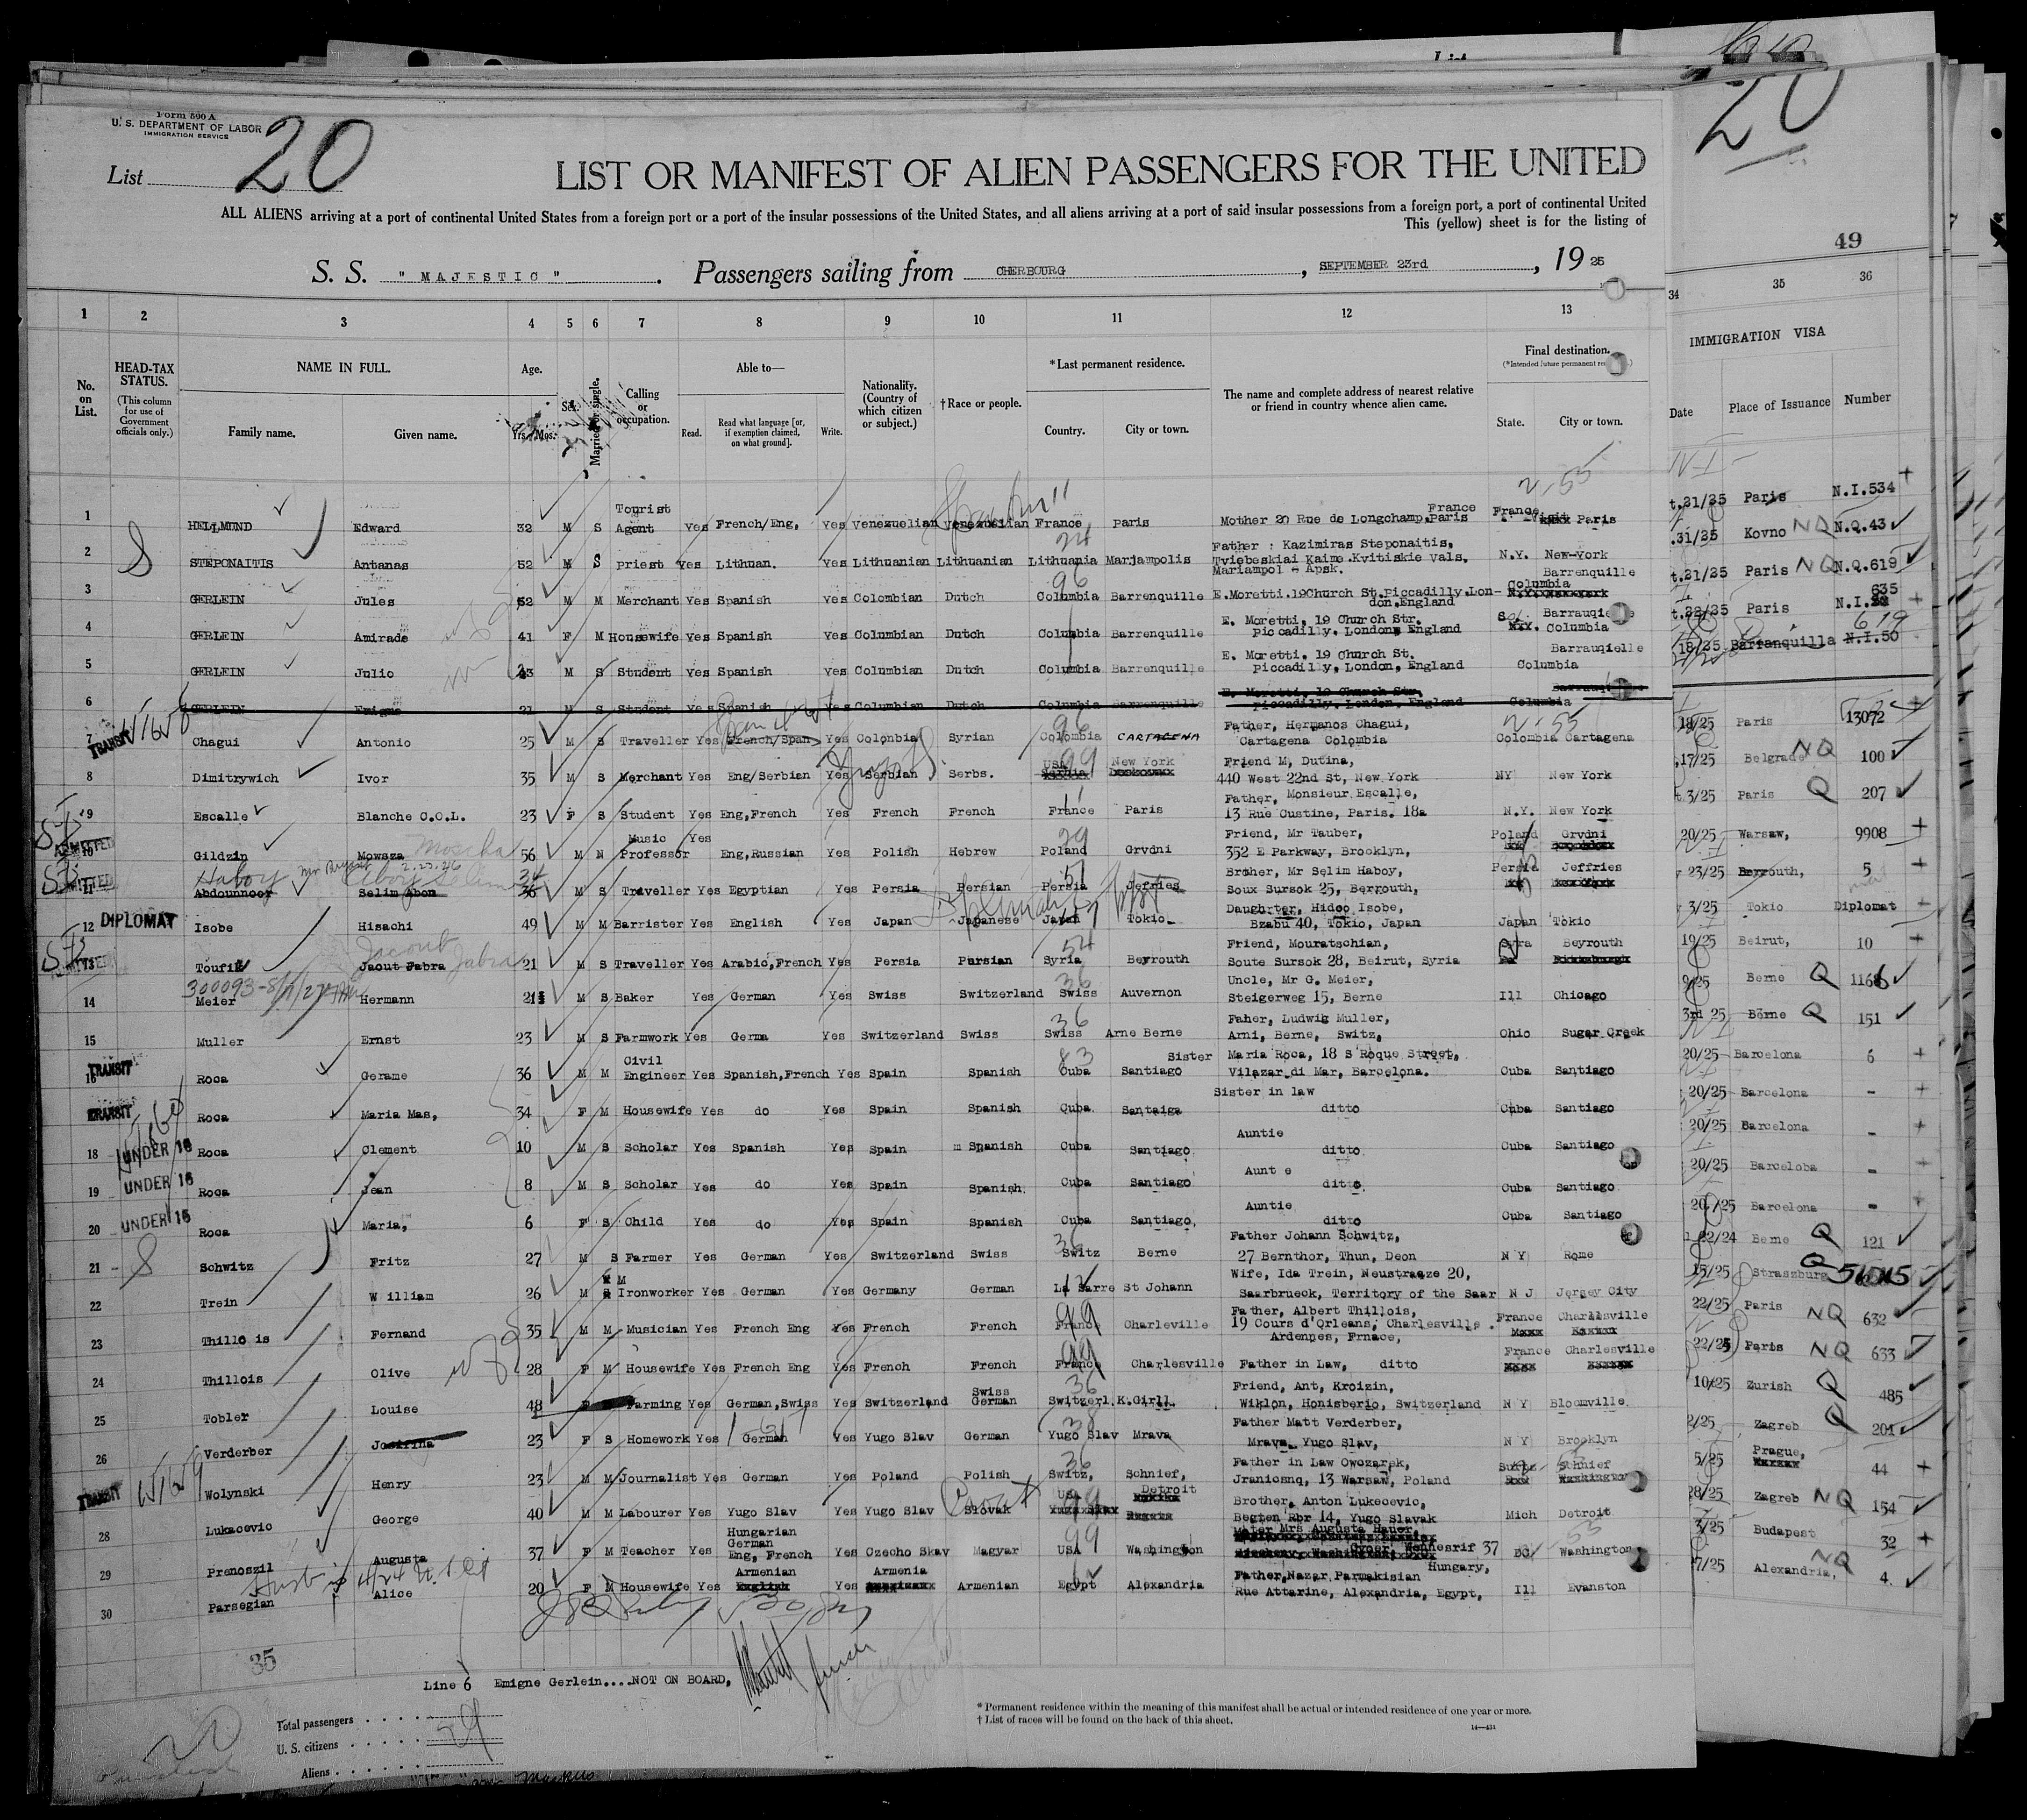 Form 590 A
U. S. DEPARTMENT OF LABOR
IMMIGRATION SERVICE
List 20
20
LIST OR MANIFEST OF ALIEN PASSENGERS FOR THE UNITED
ALL ALIENS arriving at a port of continental United States from a foreign port or a port of the insular possessions of the United States, and all aliens arriving at a port of said insular possessions from a foreign port, a port of continental United
This (yellow) sheet is for the listing of
49
S. S. "MAJESTIC". Passengers sailing from CHERBOURG, SEPTEMBER 23rd, 19 25
1 2 3 4 5 6 7 8 9 10 11 12 13 34 35 36
No. on List.
HEAD-TAX STATUS.
(This column for use of Government officials only.)
NAME IN FULL.
Family name. Given name.
Age.
Yrs. Mos.
Sex.
Married or single.
Calling or occupation.
Able to—
Read. Read what language [or, if exemption claimed, on what ground]. Write.
Nationality. (Country of which citizen or subject.)
†Race or people.
*Last permanent residence.
Country. City or town.
The name and complete address of nearest relative or friend in country whence alien came.
Final destination.
State. City or town.
IMMIGRATION VISA
Date Place of Issuance Number
1 HELLMUND Edward 32 M S Tourist Agent Yes French/Eng, Yes Venezuelian Venezuelian France Paris Mother 20 Rue de Longchamp, Paris France France Paris t.21/25 Paris N.I.534
2 STEPONAITIS Antanas 52 M S priest Yes Lithuan. Yes Lithuanian Lithuanian Lithuania Marjampolis Father : Kazimiras Steponaitis, Tviebeskiai Kaime.Kvitiskie Vals. Mariampol - Apsk. N.Y. New-York .31/25 Kovno NQ N.Q.43
3 GERLEIN Jules 52 M M Merchant Yes Spanish Yes Colombian Dutch Columbia Barrenquille E.Moretti.19Church St.Piccadilly.London.England Columbia Barrenquille t.21/25 Paris NQ N.Q.619
4 GERLEIN Amirade 41 F M Housewife Yes Spanish Yes Columbian Dutch Columbia Barrenquille E. Moretti. 19 Church Str. Piccadilly. London, England Columbia t.22/25 Paris N.I. 635
5 GERLEIN Julio M S Student Yes Spanish Yes Columbian Dutch Columbia Barrenquille E. Moretti. 19 Church St. Piccadilly, London, England Barrauqielle Columbia 18/25 Barranquilla N.I.50 619
6 GERLEIN Emigne 21 M S Student Yes Spanish Yes Columbian Dutch Columbia Barrenquille E. Moretti. 19 Church Str. Piccadilly. London, England Columbia
7 TRANSIT Chagui Antonio 25 M S Traveller Yes French/Span Yes Colonbia Syrian Colombia CARTAGENA Father, Hermanos Chagui, Cartagena Colombia Colombia Cartagena 18/25 Paris 13072
8 Dimitrywich Ivor 35 M S Merchant Yes Eng/Serbian Yes Serbian Serbs. USA New York Friend M, Dutina, 440 West 22nd St, New York NY New York 17/25 Belgrade NQ 100
9 Escalle Blanche C.O.L. 23 F S Student Yes Eng,French Yes French French France Paris Father, Monsieur Escalle, 13 Rue Custine, Paris. 18a N.Y. New York t.3/25 Paris Q 207
10 ADMITTED Gildzin Mowsza Moscha 56 M N Music Professor Yes Eng,Russian Yes Polish Hebrew Poland Grvdni Friend, Mr Tauber, 352 E Parkway, Brooklyn, Poland Grvdni 20/25 Warsaw, 9908
11 ADMITTED Abdounnoor Haboy Selim Abon 36 M S Traveller Yes Egyptian Yes Persia Persian Persia Jefries Brother, Mr Selim Haboy, Soux Sursok 25, Berrouth, Persia Jeffries 23/25 Beyrouth, 5
12 DIPLOMAT Isobe Hisachi 49 M M Barrister Yes English Yes Japan Japanese Japan Tokio Daughrter, Hidoo Isobe, Bzabu 40, Tokio, Japan Japan Tokio 3/25 Tokio Diplomat
13 ADMITTED Toufik Jaout Jabra 21 M S Traveller Yes Arabic,French Yes Persia Persian Syria Beyrouth Friend, Mouratschian, Soute Sursok 28, Beirut, Syria Syra Beyrouth 19/25 Beirut, 10
14 Meier Hermann 21 M S Baker Yes German Yes Swiss Switzerland Swiss Auvernon Uncle, Mr G. Meier, Steigerweg 15, Berne Ill Chicago 9/25 Berne Q 1166
15 Muller Ernst 23 M S Farmwork Yes Germa Yes Switzerland Swiss Swiss Arne Berne Faher, Ludwig Muller, Arni, Berne, Switz, Ohio Sugar Creek 3rd 25 Börne Q 151
16 TRANSIT Roca Gerame 36 M M Civil Engineer Yes Spanish,French Yes Spain Spanish Cuba Santiago Sister Maria Roca, 18 S Roque Street, Vilazar di Mar, Barcelona. Cuba Santiago 20/25 Barcelona 6
TRANSIT Roca Maria Mas, 34 F M Housewife Yes do Yes Spain Spanish Cuba Santaiga Sister in law ditto Cuba Santiago 20/25 Barcelona -
18 UNDER 16 Roca Clement 10 M S Scholar Yes Spanish Yes Spain Spanish Cuba Santiago Auntie ditto Cuba Santiago 20/25 Barcelona -
19 UNDER 16 Roca Jean 8 M S Scholar Yes do Yes Spain Spanish Cuba Santiago Aunt e ditto Cuba Santiago 20/25 Barceloba -
20 UNDER 16 Roca Maria, 6 F S Child Yes do Yes Spain Spanish Cuba Santiago, Auntie ditto Cuba Santiago 20/25 Barcelona -
21 Schwitz Fritz 27 M S Farmer Yes German Yes Switzerland Swiss Switz Berne Father Johann Schwitz, 27 Bernthor, Thun, Deon N Y Rome 22/24 Berne Q 121
22 Trein William 26 M M Ironworker Yes German Yes Germany German La Sarre St Johann Wife, Ida Trein, Neustrasze 20, Saarbrueck, Territory of the Saar N J Jersey City 15/25 Straszburg Q
23 Thillois Fernand 35 M M Musician Yes French Eng Yes French French France Charleville Father, Albert Thillois, 19 Cours d'Orleans, Charlesville. Ardennes, Frnace, France Charllsville 22/25 Paris NQ 632
24 Thillois Olive 28 F M Housewife Yes French Eng Yes French French France Charlesville Father in Law, ditto France Charlesville 22/25 Paris NQ 633
25 Tobler Louise 48 F Farming Yes German,Swiss Yes Switzerland Swiss German Switzerl. K.Girll Friend, Ant, Kroizin, Wiklon, Honisberio, Switzerland N Y Bloomville 10/25 Zurish Q 485
26 Verderber Josifina 23 F S Homework Yes German Yes Yugo Slav German Yugo Slav Mrava Father Matt Verderber, Mrava Yugo Slav, N Y Brooklyn 2/25 Zagreb Q 201
TRANSIT Wolynski Henry 23 M M Journalist Yes German Yes Poland Polish Switz, Schnief, Father in Law Owozarek, Jraniosnq, 13 Warsaw, Poland Schnief 5/25 Prague, 44
28 Lukacevic George 40 M M Labourer Yes Yugo Slav Yes Yugo Slav Slovak USA Detroit Brother, Anton Lukecevic, Begten Rbr 14, Yugo Slavak Mich Detroit 28/25 Zagreb NQ 154
29 Prenoszil Augusta 37 F M Teacher Yes Hungarian German Eng, French Yes Czecho Skav Magyar USA Washington Mater Mrs Augusta Hauer, Gyoer, Wennesrif 37 Hungary, DC Washington 3/25 Budapest 32
30 Parsegian Alice 20 F M Housewife Yes Armenian Yes Armenia Armenian Egypt Alexandria Father,Nazar Parmakisian Rue Attarine, Alexandria, Egypt, Ill Evanston 7/25 Alexandria, NQ 4
35
Line 6 Emigne Gerlein....NOT ON BOARD,
Total passengers 29
U. S. citizens
Aliens
* Permanent residence within the meaning of this manifest shall be actual or intended residence of one year or more.
† List of races will be found on the back of this sheet.
14—431